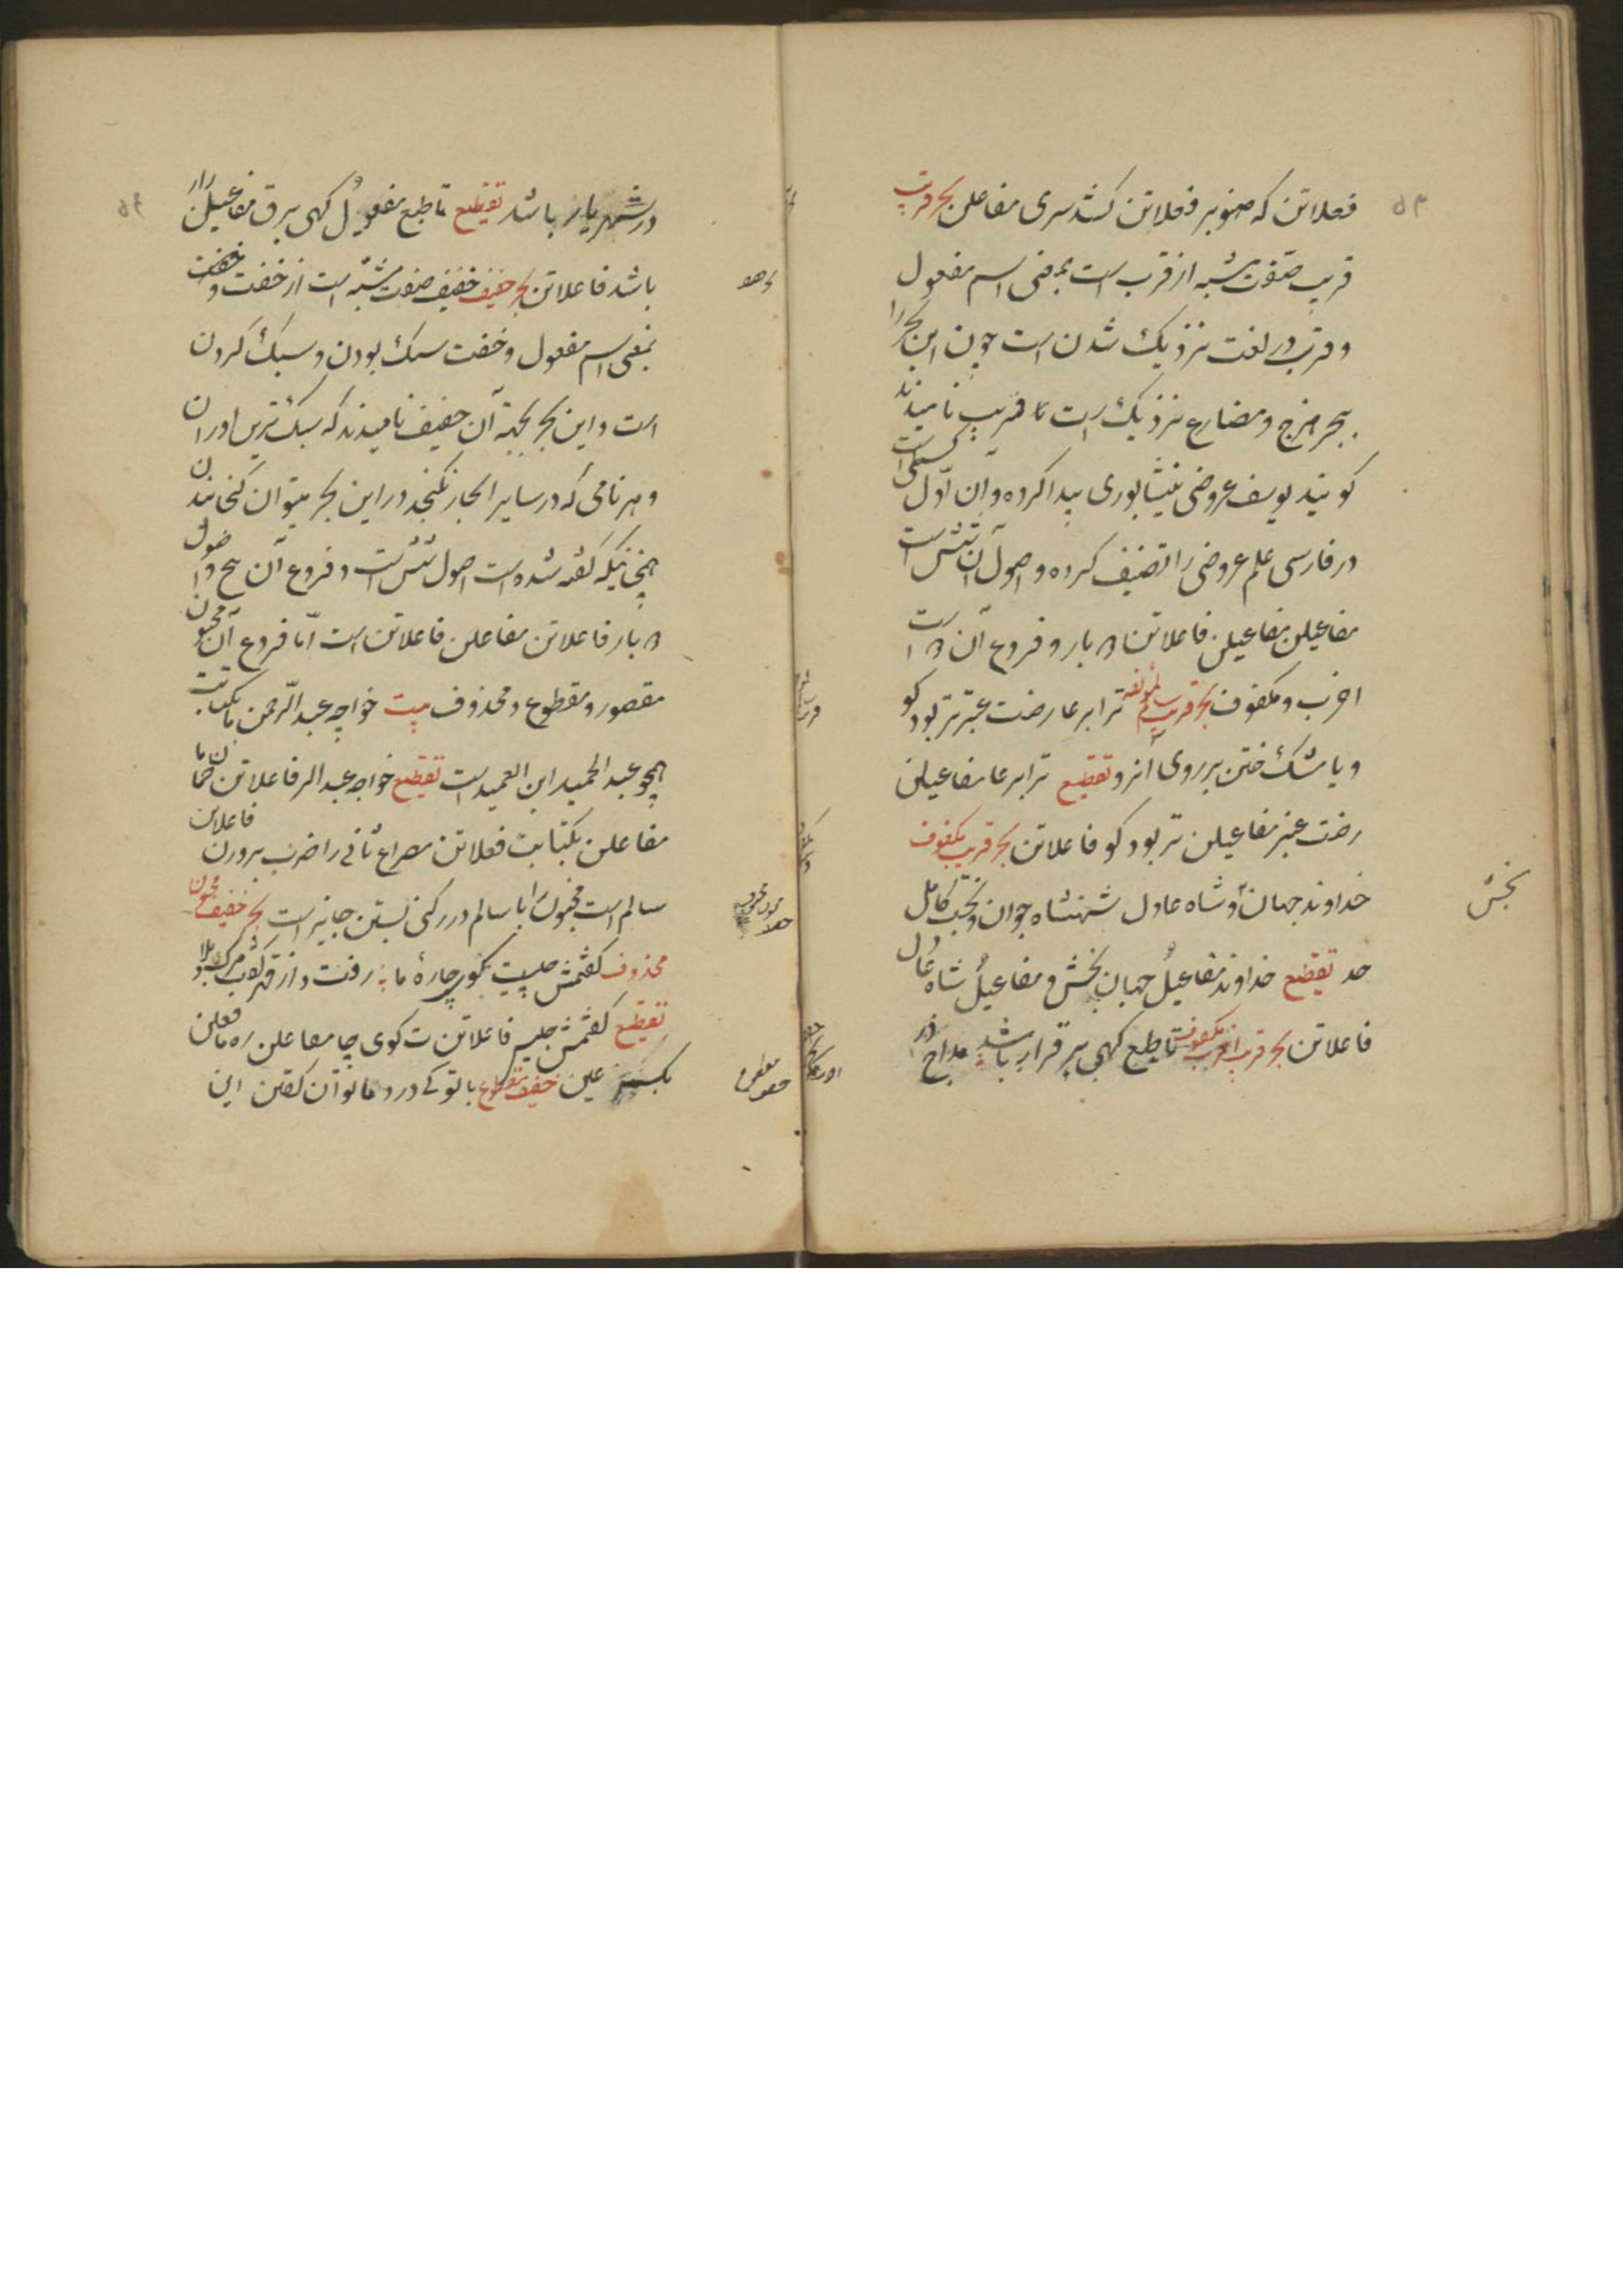 فعلاتن که صنوبر فعلاتن کشد سری مفاعلن بحر قریب
قریب صفت مشبه از قرب است بمعنی اسم مفعول
و قرب در لغت نزدیک شدن است چون این بحر را
ببحر هزج و مضارع نزدیک است قریب نامیدند
کویند یوسف عروضی نیشابوری پیدا کرده و آن اول کسی است
در فارسی علم عروضی را تصنیف کرده و اصول آن شش است
مفاعیلن مفاعیلن فاعلاتن بار و فروع آن است
اخرب و مکفوف بحر قریب سالم لمؤلفه ترا بر عارضت عنبر تر بود کو
و یا مشک ختن بر روی آذر و تقطیع ترا بر عا مفاعیلن
رضت عنبر مفاعیلن تر بود کو فاعلاتن بحر قریب مکفوف
خداوند جهان و شاه عادل شهنشاه جوان بخت کامل
بخش
حد تقطیع خداوند مفاعیل جهان بخش و مفاعیل شاه عادل
فاعلاتن بحر قریب اخرب مکفوف تا طبع کهی بر قرار باشد مداح در
در شهریار باشد تقطیع تا طبع مفعول کهی برق مفاعیلن رار
باشد فاعلاتن بحر خفیف خفیف صفت مشبه است از خفت و خفت
بمعنی اسم مفعول و خفت سبک بودن و سبک کردن
است و این بحر بجهة آن خفیف نامیدند که سبک ترین اوزان
و هر نامی که در سایر ابحار نکنجد در این بحر میتوان کنجانیدن
چنانکه کفته شده است اصول شش است و فروع آن پنج و اصول
بار فاعلاتن مفاعلن فاعلاتن است اما فروع آن مخبون
مقصور و مقطوع و محذوف بیت خواجه عبد الرحمن ما بکتابت
همچو عبد الحمید ابن العمید است تقطیع خواجه عبد الر فاعلاتن حما ن ما
مفاعلن بکتابت فعلاتن مصراع ثانی را ضرب بر وزن فاعلاتن
سالم است مخبون را با سالم در رکنی بستن جایز است بحر خفیف مخبون
محذوف کفتمش چیست بکوی چارهٔ ما رفت و از قهر کفت مرک بلا
تقطیع کفتمش چیس فاعلاتن ت کوی چا مفاعلن ره ما فعلن
بکسر عین خفیف مقطوع با تو کی درد ما توان کفتن این